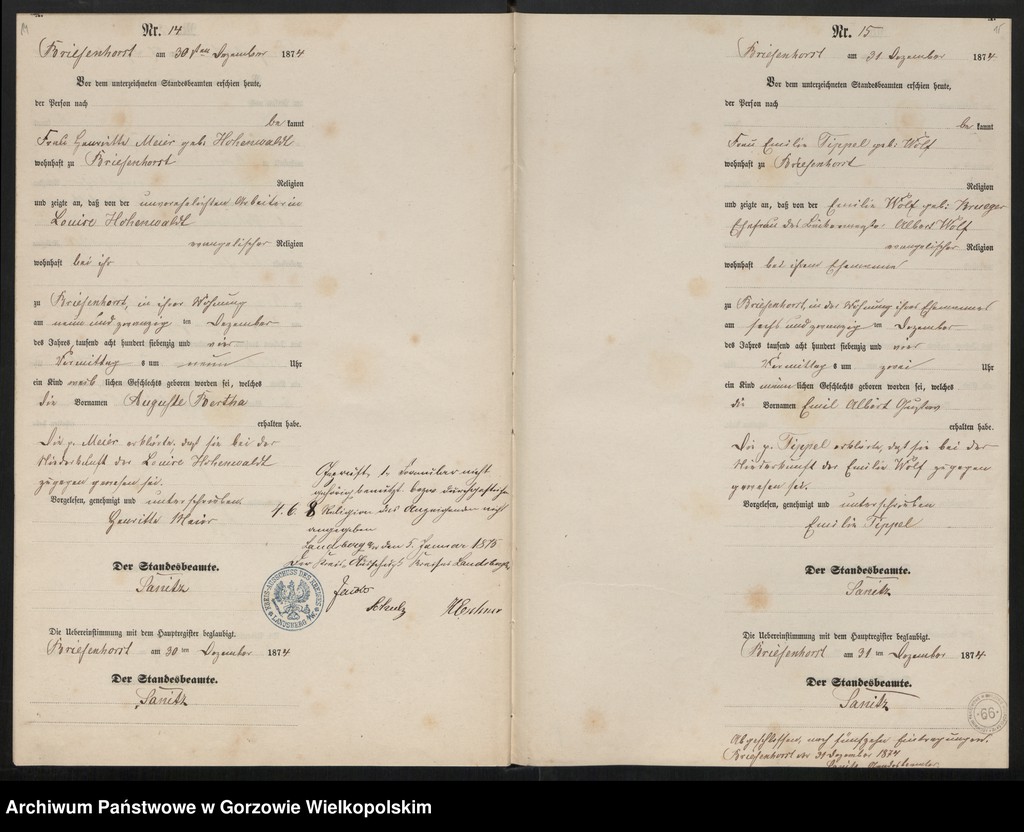 14
Nr. 14
Briesenhorst am 30 sten Dezember 1874
Vor dem unterzeichneten Standesbeamten erschien heute,
der Person nach
be kannt
Frau Henriette Meier geb: Hohenwaldt
wohnhaft zu Briesenhorst
Religion
und zeigte an, daß von der unverehelichten Arbeiterin
Louise Hohenwaldt
evangelischer Religion
wohnhaft bei ihr
zu Briesenhorst, in ihrer Wohnung
am neun und zwanzig ten Dezember
des Jahres tausend acht hundert siebenzig und vier
Vormittag s um neun Uhr
ein Kind weib lichen Geschlechts geboren worden sei, welches
die Vornamen Auguste Bertha
erhalten habe.
Die p. Meier erklärte, daß sie bei der
Niederkunft der Louise Hohenwaldt
zugegen gewesen sei.
Vorgelesen, genehmigt und unterschrieben
Henriette Meier
Der Standesbeamte.
Sanitz
Die Uebereinstimmung mit dem Hauptregister beglaubigt.
Briesenhorst am 30 ten Dezember 1874
Der Standesbeamte.
Sanitz
Formular nicht
gehörig benutzt
4. 6 8 Religion des Anzeigenden nicht
angegeben
Landsberg a/W den 5. Januar 1875
Der Kreis Ausschuß Kreises Landsberg
Schulz
KREIS-AUSSCHUSS DES KREISES LANDSBERG a/W
15
Nr. 15
Briesenhorst am 31 Dezember 1874
Vor dem unterzeichneten Standesbeamten erschien heute,
der Person nach
be kannt
Frau Emilie Tippel geb: Wolf
wohnhaft zu Briesenhorst
Religion
und zeigte an, daß von der Emilie Wolf geb: Brueger
Ehefrau des Albert Wolf
evangelischer Religion
wohnhaft bei ihrem Ehemanne
zu Briesenhorst, in der Wohnung ihres Ehemannes
am sechs und zwanzig ten Dezember
des Jahres tausend acht hundert siebenzig und vier
Vormittag s um zwei Uhr
ein Kind männ lichen Geschlechts geboren worden sei, welches
die Vornamen Emil Albert Gustav
erhalten habe.
Die p. Tippel erklärte, daß sie bei der
Niederkunft der Emilie Wolf zugegen
gewesen sei.
Vorgelesen, genehmigt und unterschrieben
Emilie Tippel
Der Standesbeamte.
Sanitz
Die Uebereinstimmung mit dem Hauptregister beglaubigt.
Briesenhorst am 31 ten Dezember 1874
Der Standesbeamte.
Sanitz
66
Abgeschlossen, nach fünfzehn Eintragungen.
Briesenhorst den 31 Dezember 1874
Sanitz Standesbeamter
Archiwum Państwowe w Gorzowie Wielkopolskim